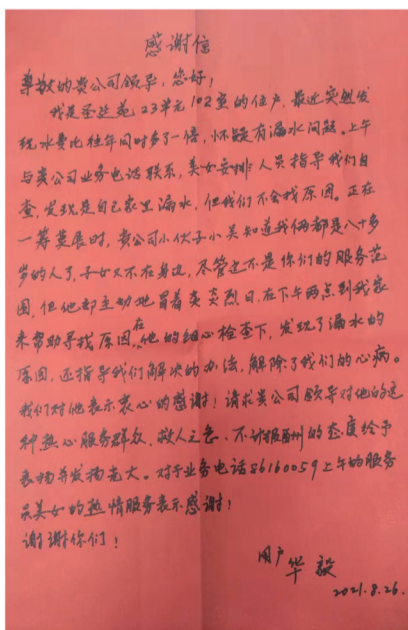 感谢信
尊敬的贵公司领导，您好！
我是圣达苑23单元102室的住户，最近突然发
现水费比往年同时多了一倍，怀疑有漏水问题。上午
与贵公司业务电话联系，美女安排人员指导我们自
查，发现是自己家里漏水，但我们不会找原因。正在
一筹莫展时，贵公司小伙子小吴知道我俩都是八十多
岁的人了，子女又不在身边，尽管这不是你们的服务范
围，但他却主动地冒着炎炎烈日，在下午两点到我家
来帮助寻找原因，在他的细心检查下，发现了漏水的
原因，还指导我们解决的办法，解除了我们的心病。
我们对他表示衷心的感谢！请求贵公司领导对他的这
种热心服务群众、救人之急、不计报酬的态度给予
表扬并发扬光大。对于业务电话86160059上午的服务
员美女的热情服务表示感谢！
谢谢你们！
用户 华毅
2021.8.26.